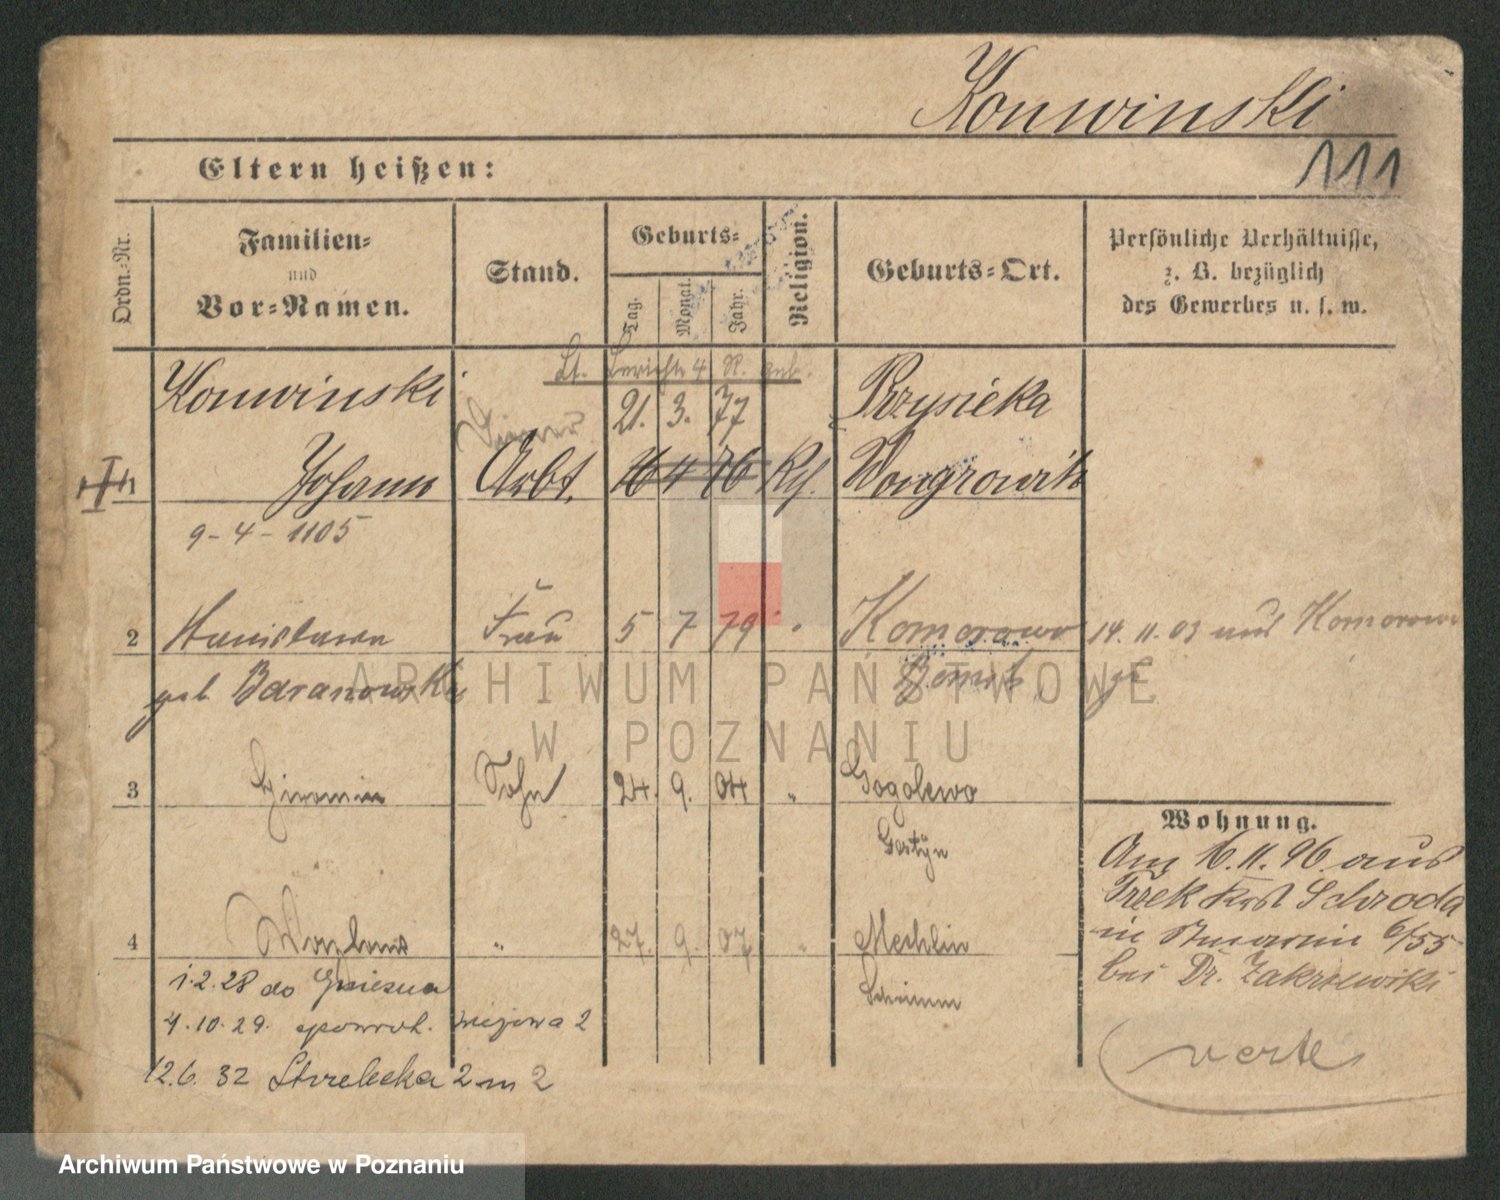 Konwinski
111
Eltern heißen:
Ordn.-Nr.
Familien-
und
Vor-Namen.
Stand.
Geburts-
Tag.
Monat.
Jahr.
Religion.
Geburts-Ort.
Persönliche Verhältnisse,
z. B. bezüglich
des Gewerbes u. s. w.
Konwinski
21. 3. 77
Brzysieka
Johann Arbt. 16 4 76 Kth. Wongrowitz
9-4-1105
2 Stanislawa Frau 5 7 79 " Komorowo 14. 11. 03 aus Komorowo
geb Baranowska Bomst
3 Sohn 24. 9. 04 " Gogolewo
Gostyn
Wohnung.
Am 16.11.96. aus
Kost Schroda
in 6/55
bei Dr. Zakrzewski
4 " 27. 9. 07 " Mechlin
Schrimm
1.2.28 do Gniezna
4.10.29. spowrot. 2
12.6.32 Strzelecka 2 m 2
verte
ARCHIWUM PAŃSTWOWE
W POZNANIU
Archiwum Państwowe w Poznaniu